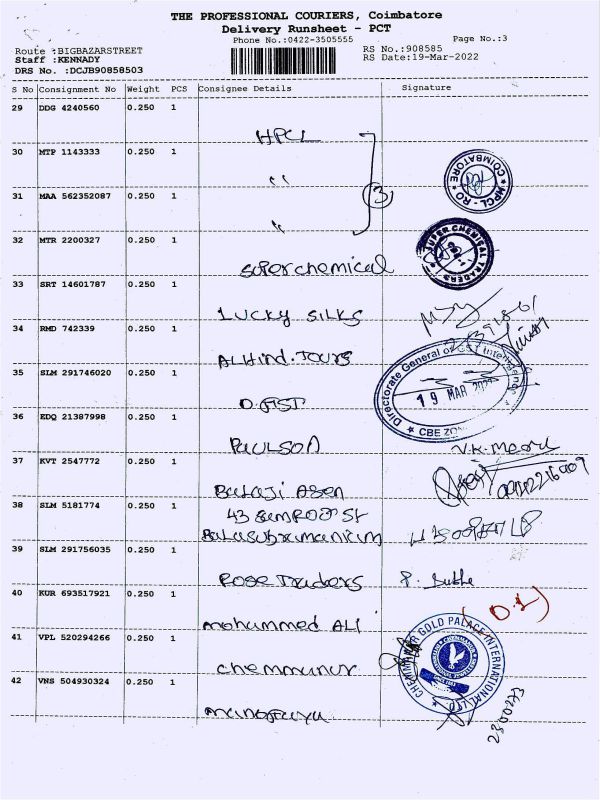 THE PROFESSIONAL COURIERS, Coimbatore
Delivery Runsheet - PCT
Phone No.:0422-3505555
Page No.:3
Route :BIGBAZARSTREET
RS No.:908585
Staff :KENNADY
RS Date:19-Mar-2022
DRS No. :DCJB90858503
S No Consignment No Weight PCS Consignee Details Signature
29 DDG 4240560 0.250 1
HPCL
30 MTP 1143333 0.250 1
"
HPCL - RO COIMBATORE
31 MAA 562352087 0.250 1
3
"
32 MTR 2200327 0.250 1
SUPER CHEMICAL TRADERS
Super chemical
33 SRT 14601787 0.250 1
Lucky Silks
34 RMD 742339 0.250 1
ALHind. Tours
35 SLM 291746020 0.250 1
Directorate General of GST Intelligence
19 MAR 2022
CBE ZON
D.GST
36 EDQ 21387998 0.250 1
PAULSON
37 KVT 2547772 0.250 1
Balaji Agen
38 SLM 5181774 0.250 1
43
St
Balasubramanium
39 SLM 291756035 0.250 1
Rose Traders
40 KUR 693517921 0.250 1
mohammed ALi
41 VPL 520294266 0.250 1
CHEMMANUR GOLD PALACE INTERNATIONAL LTD
chemmanur
42 VNS 504930324 0.250 1
2300273